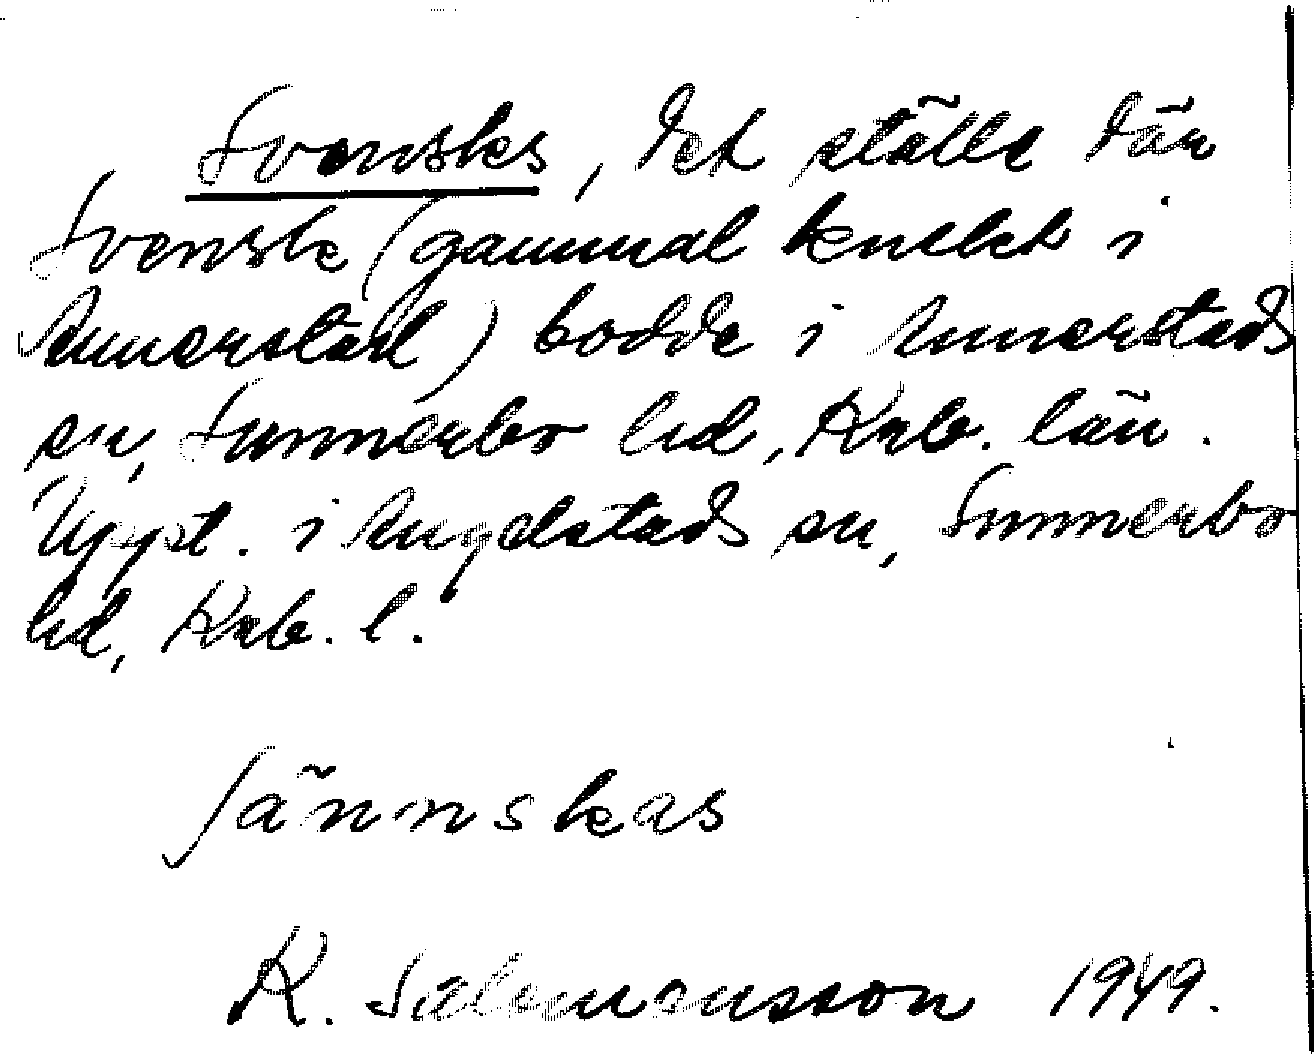 Svensks, det ställe där
Svensk (gammal knekt i
Annerstad) bodde i Annerstads
sn, Sunnerbo hd, Krb. län.
Uppt. i Angelstads sn, Sunnerbo
hd, Krb. l.
Sännskas
K. Salomonsson 1949.